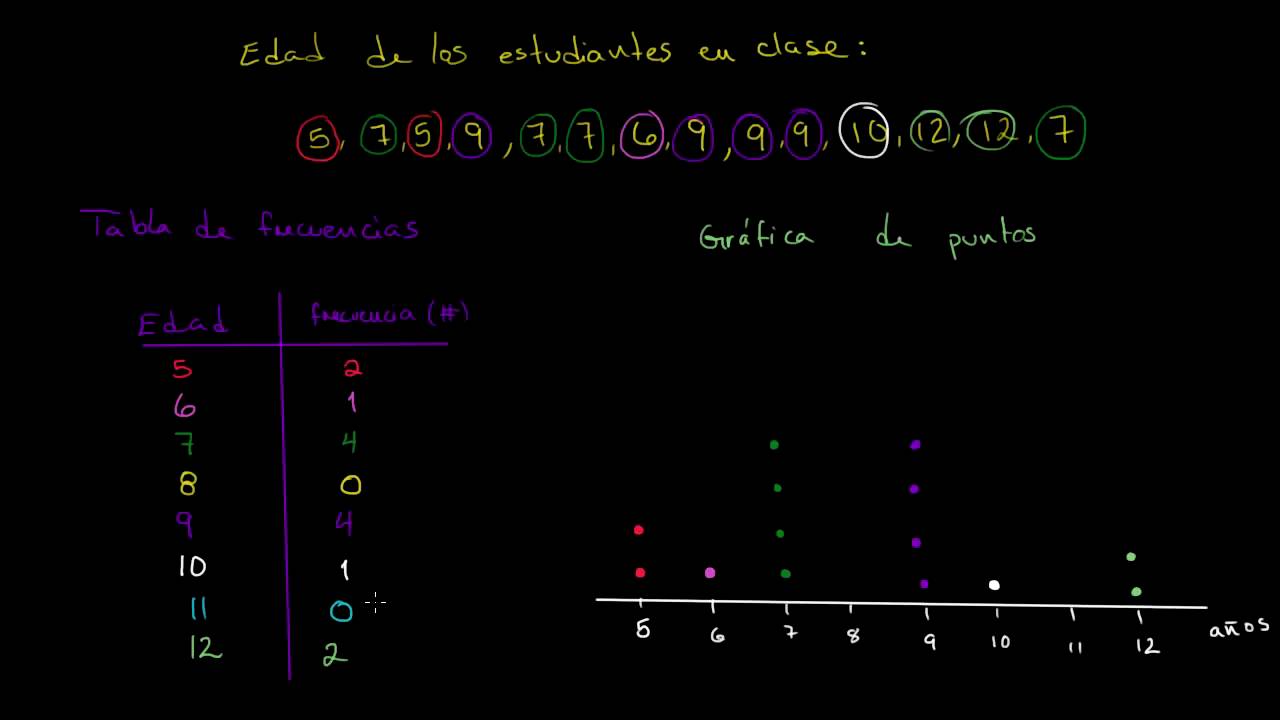 Edad de los estudiantes en clase:
5, 7, 5, 9, 7, 7, 6, 9, 9, 9, 10, 12, 12, 7
Tabla de frecuencias
Gráfica de puntos
Edad frecuencia (#)
5 2
6 1
7 4
8 0
9 4
10 1
11 0
12 2
5 6 7 8 9 10 11 12 años